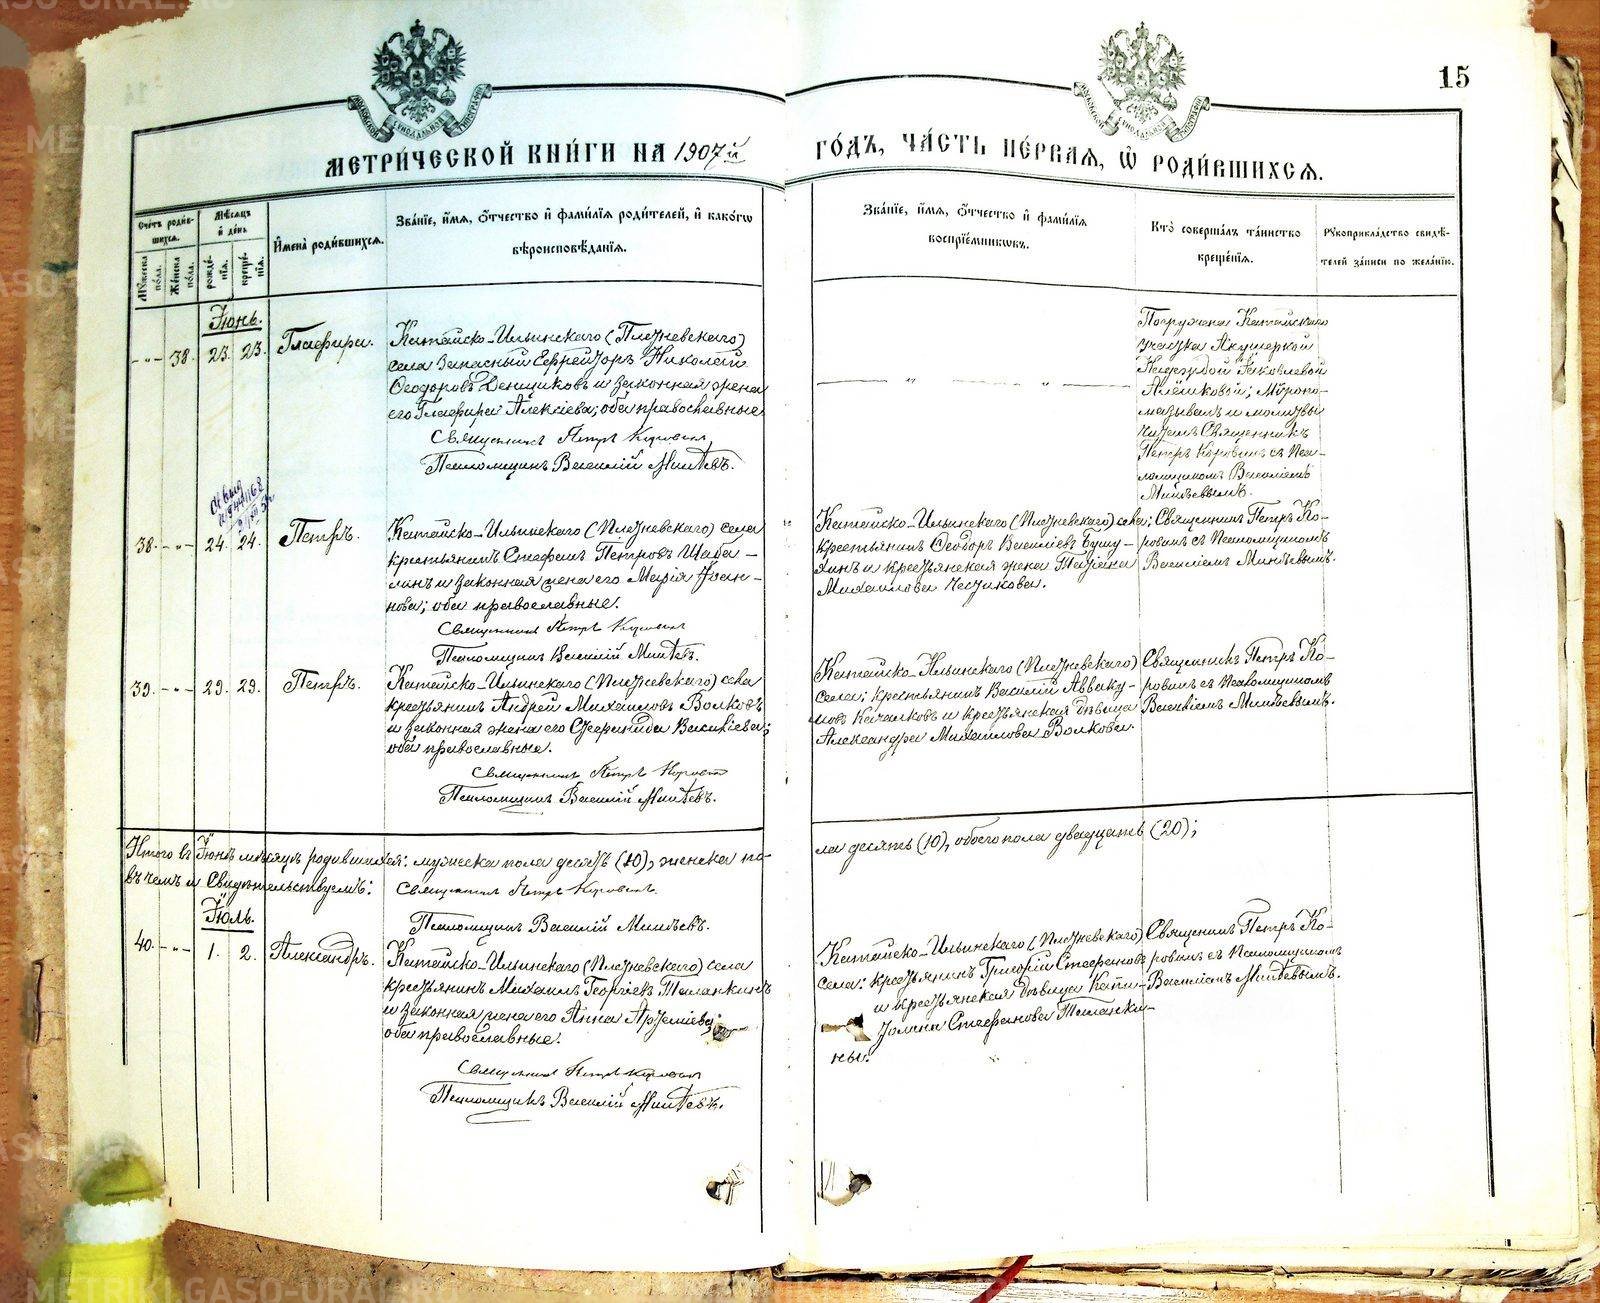 15
МЕТРИ́ЧЕСКОЙ КНИ́ГИ НА 1907й
ГО́ДЪ, ЧА́СТЬ ПЕ́РВАѦ, Ѽ РОДИ́ВШИХСѦ.
Сче́тъ роди́в-
шихсѧ.
Мꙋ́жеска по́ла.
Же́нска по́ла.
Мѣ́сѧцъ и҆ де́нь
рожде́-нїѧ.
креще́-нїѧ.
И҆мена̀ роди́вшихсѧ.
Зва́нїе, и҆́мѧ, ѻ҆́тчество и҆ фами́лїѧ роди́телей, и҆ како́гѡ
вѣроисповѣ́данїѧ.
Зва́нїе, и҆́мѧ, ѻ҆́тчество и҆ фами́лїѧ
воспрїе́мникѡвъ.
Кто̀ соверша́лъ та́инство
креще́нїѧ.
Рꙋкоприкла́дство свидѣ́-
телей за́писи по жела́нїю.
Іюнь.
38. 23. 23. Глафира.
Катайско-Ильинскаго (Плетневскаго)
села Запасный Ефрейторъ Николай
Ѳеодоровъ Денщиковъ и законная жена
его Глафира Алексіева; оба православные
Священникъ Петръ Коровинъ
Псаломщикъ Василій Минѣевъ.
Погружена Катайскаго
участка Акушеркой
Надеждой Яковлевой
Алёшковой; Мѵропо-
мазывалъ и молитвы
читалъ Священникъ
Петръ Коровинъ съ Пса-
ломщикомъ Василіемъ
Минѣевымъ.
38. 24. 24. Петръ.
Катайско-Ильинскаго (Плетневскаго) села
крестьянинъ Стефанъ Петровъ Шаба-
линъ и законная жена его Марія Іоан-
нова; оба православные.
Священникъ Петръ Коровинъ
Псаломщикъ Василій Минѣевъ.
Катайско-Ильинскаго (Плетневскаго) села;
крестьянинъ Ѳеодоръ Василіевъ Бушу-
хинъ и крестьянская жена Татіана
Михаилова
Священникъ Петръ Ко-
ровинъ съ Псаломщикомъ
Василіемъ Минѣевымъ.
39. 29. 29. Петръ.
Катайско-Ильинскаго (Плетневскаго) села
крестьянинъ Андрей Михаиловъ Волковъ
и законная жена его Василіева;
оба православные.
Священникъ Петръ Коровинъ
Псаломщикъ Василій Минѣевъ.
Катайско-Ильинскаго (Плетневскаго)
села; крестьянинъ Василій Авваку-
мовъ Качалковъ и крестьянская дѣвица
Александра Михаилова Волкова.
Священникъ Петръ Ко-
ровинъ съ Псаломщикомъ
Василіемъ Минѣевымъ.
Итого въ Іюнѣ мѣсяцѣ родившихся: мужеска пола десять (10), женска по-
ла десять (10), обоего пола двадцать (20);
въ чемъ и Свидѣтельствуемъ:
Священникъ Петръ Коровинъ.
Псаломщикъ Василій Минѣевъ.
Іюль.
40. 1. 2. Александръ.
Катайско-Ильинскаго (Плетневскаго) села
крестьянинъ Михаилъ Георгіевъ Таланкинъ
и законная жена его Анна Артеміева;
оба православные.
Священникъ Петръ Коровинъ
Псаломщикъ Василій Минѣевъ.
Катайско-Ильинскаго (Плетневскаго)
села: крестьянинъ Григорій Стефановъ
и крестьянская дѣвица Капи-
толина Стефанова Таланки-
ны.
Священникъ Петръ Ко-
ровинъ съ Псаломщикомъ
Василіемъ Минѣевымъ.
METRIKI.GASO-URAL.RU